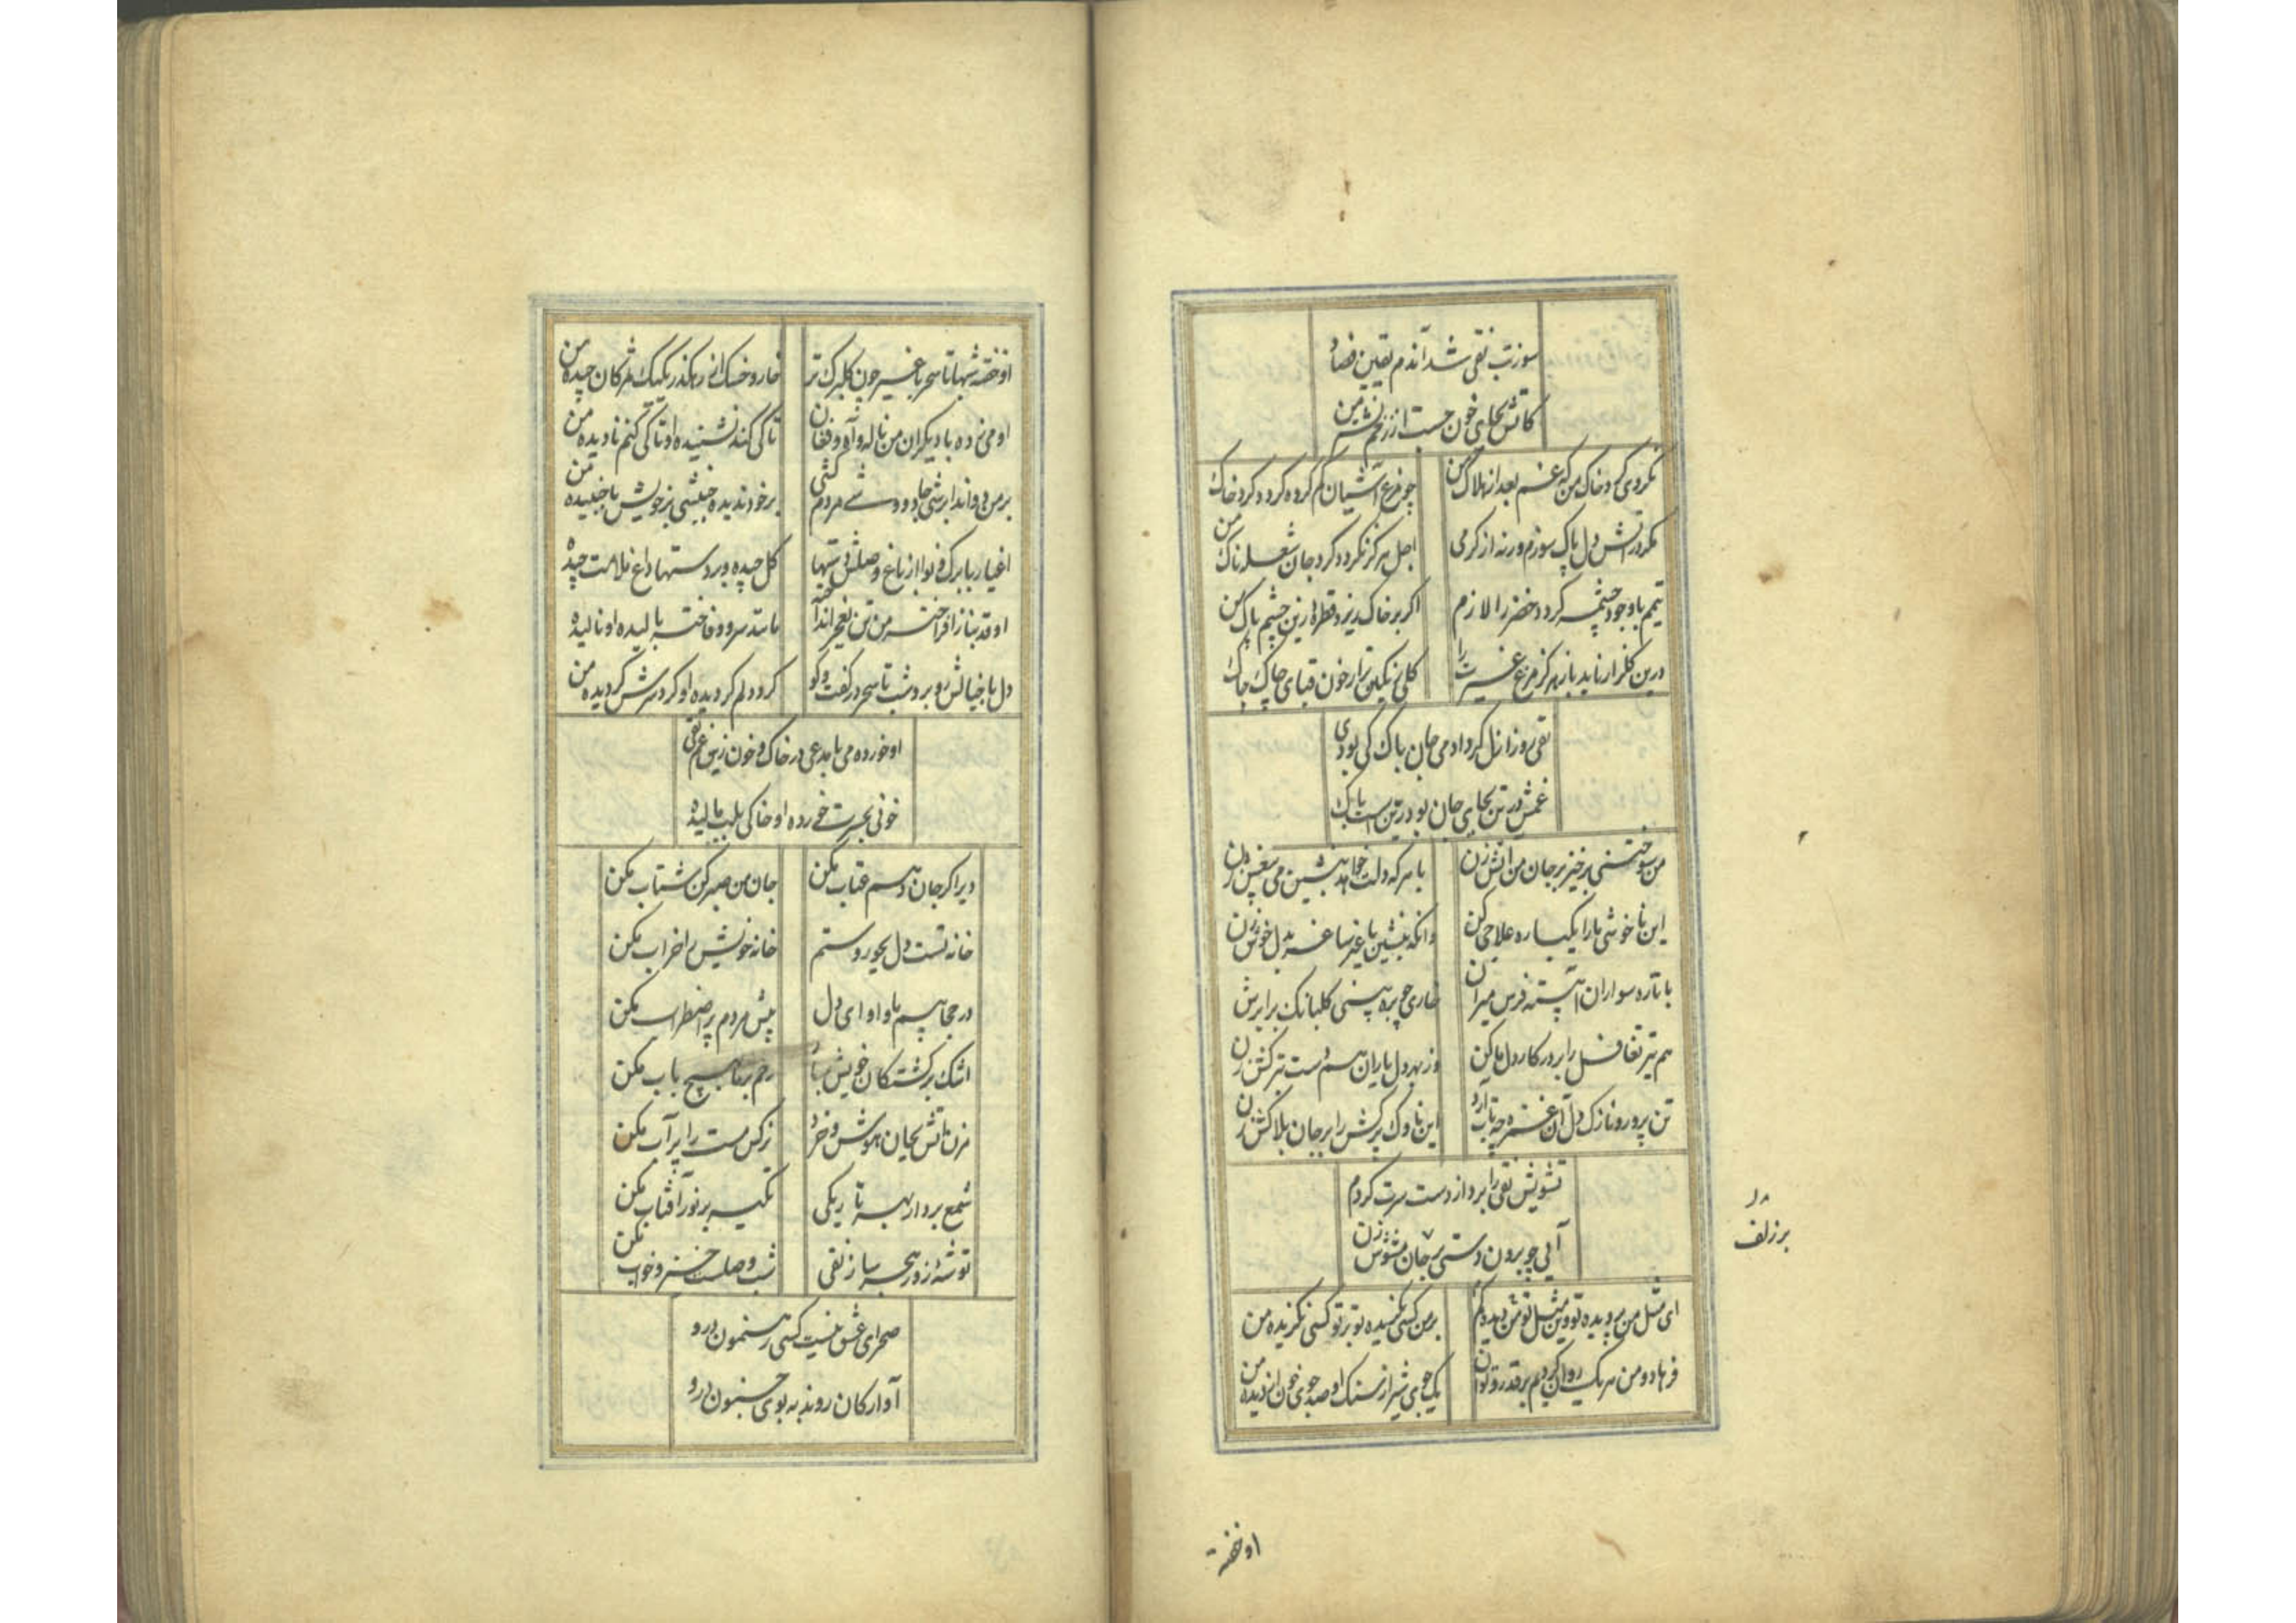 سوز تب نقی شد آندم یقین فصاد
کاتش بجای خون جست از زخم نشتر من
نکردی کرد خاک من که غم بعد از هلاک من
چو مرغ آشیان کم کرده کردد کرد خاک من
نکردر آتش دل پاک سوزم ورنه از کرمی
اجل هرکز نکردد کرد جان شعله ناک من
تیمم با وجود چشمه کردد خضر را لازم
اکر بر خاک ریزد قطره زین چشم پاک من
درین کلزار ناید باز هرکز مرغ غیرت را
کلی رنکین تر از خون قبای چاک چاک
نقی روز ازل کر آدمی جان پاک کی بودی
غمش در تن بجای جان بودی
من سوختنی برخیز بر جان من آتش زن
با هرکه دلت خواهد بنشین می بیغش زن
این ناخوشی ما را یکباره علاجی کن
وانکه بنشین با غیر ساغر بدل خوش زن
با تازه سواران آهسته فرس میران
خاری چو بره بینی کلبانک بر ابرش
هم تیر تغافل را بر در کار دل ما کن
وز بهر دل یاران هم دست بترکش زن
تن پرور و نازک دل آن غمزه چه تاب آرد
این ناوک پرکش را بر جان بلاکش زن
تشویش نقی را برد از دست سرت کردم
آیی چو برون دستی بر جان مشوش زن
ای مثل من ندیده تو وین مثل تو من ندیده هم
بر من کسی نکزیده تو بر تو کسی نکزیده من
فرهاد و من هر یک روان کردیم بر قدر توان
یک جوی شیر از سنک او صد جوی خون از دیده من
بر زلف
او خفته
او خفته شبها تا سحر با غیر چون کلبرک تر
خار و خسک از رهکذر یک یک بمژکان چیده من
او می زده با دیکران من ناله و آه و فغان
تا کی کند نشنیده او تا کی کنم نادیده من
بر خود ندیده جنبشی بر خویش ناجنبیده من
اغیار با برک و نوا از باغ وصلش شبها
کل چیده و بر دستها داغ ملامت چیده
او قد بناز افراخته من تن بعجز انداخته
مانند سرو و فاخته بالیده او نالیده
دل با خیالش روبرو شب تا سحر در کفت و کو
کرد دلم کردیده او کرد سرش کردیده من
او خورده می با مدعی در خاک و خون زین غم نقی
خونی بحسرت خورده او خاکی بلب مالیده
دیر اکر جان دهم عتاب مکن
جان من صبر کن شتاب مکن
خانه تست دل بجور و ستم
خانه خویش را خراب مکن
در حجابیم ما و او ای دل
پیش مردم پر اضطراب مکن
اشک بر کشتکان خویش مبار
رحم بر ما بهیچ باب مکن
مزن آتش بجان هوش و خرد
نرکس مست را پرآب مکن
شمع بردار بهر تاریکی
تکیه بر نور آفتاب مکن
توشه روز هجر ساز نقی
شب وصلست خیز و خواب مکن
صحرای عشق نیست کسی رهنمون درو
آوارکان روند به بوی جنون درو